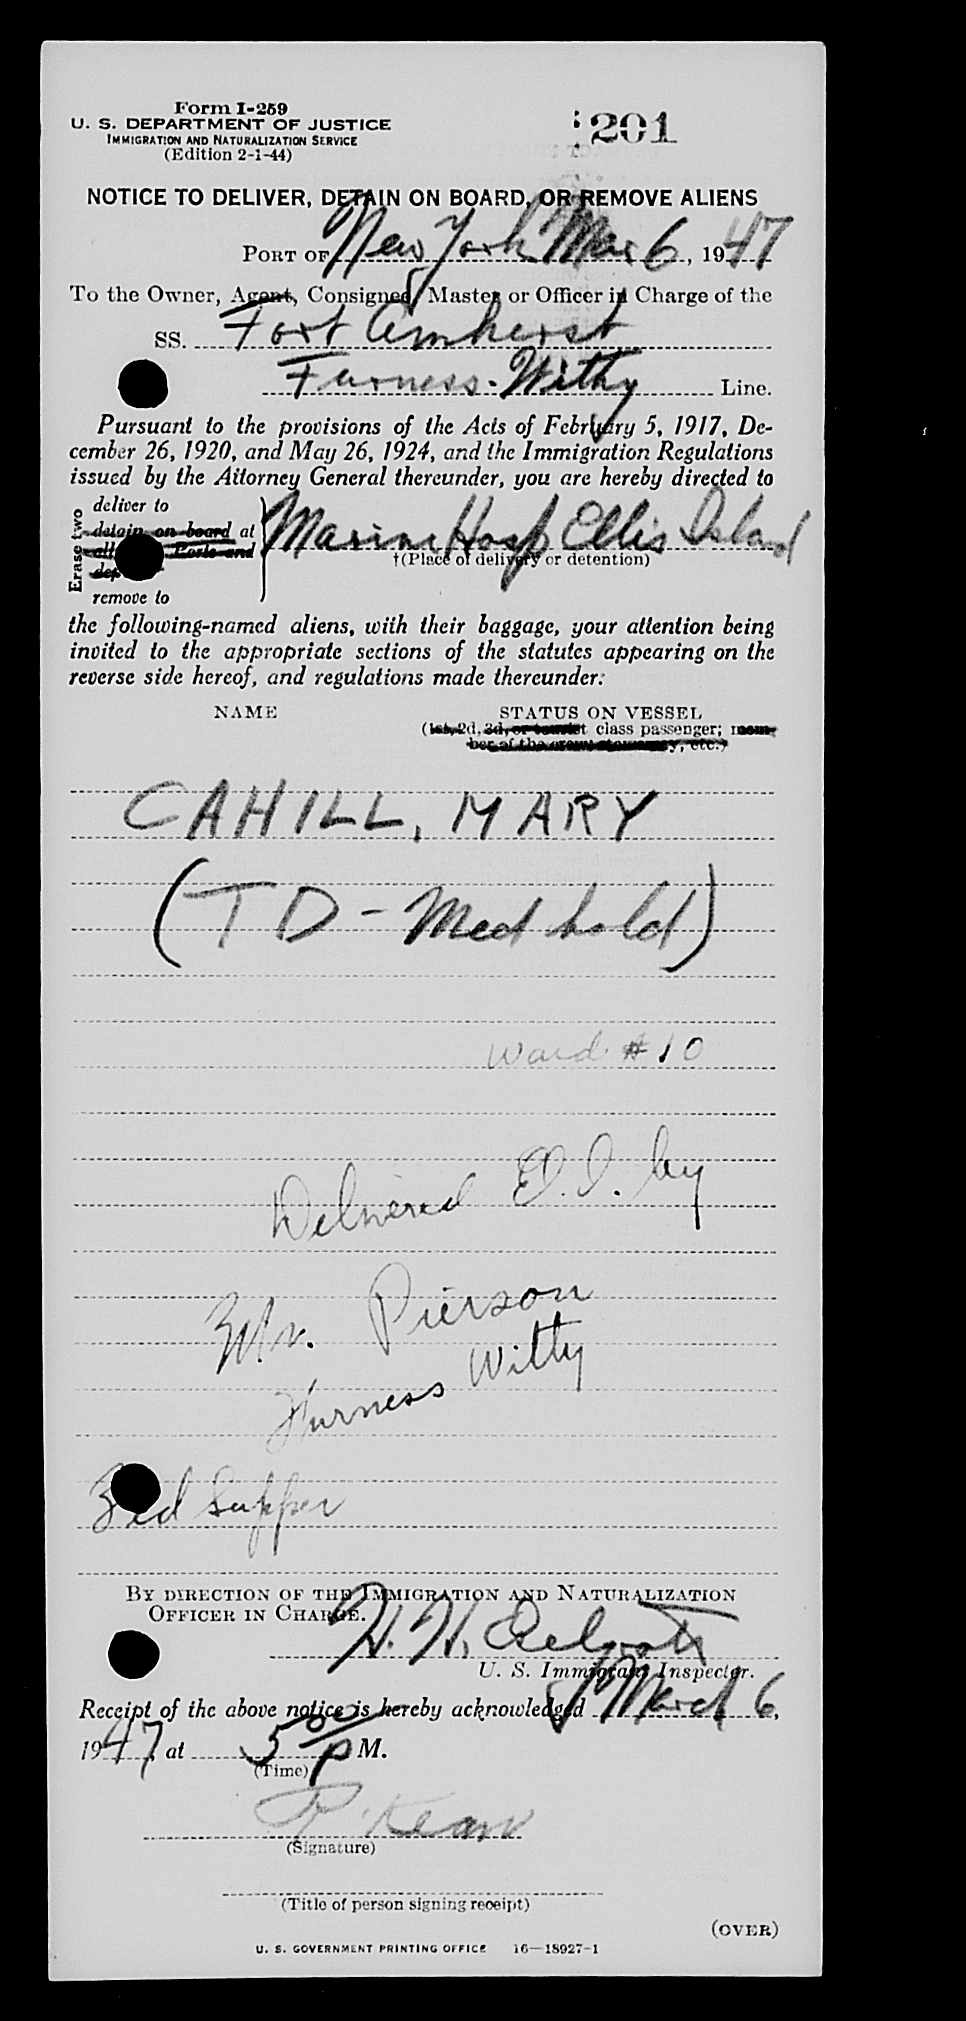 Form I-259
U. S. DEPARTMENT OF JUSTICE
IMMIGRATION AND NATURALIZATION SERVICE
(Edition 2-1-44)
201
NOTICE TO DELIVER, DETAIN ON BOARD, OR REMOVE ALIENS
PORT OF New York Mar 6, 1947
To the Owner, Agent, Consignee, Master or Officer in Charge of the
SS. Fort Amherst
Furness-Withy Line.
Pursuant to the provisions of the Acts of February 5, 1917, De-
cember 26, 1920, and May 26, 1924, and the Immigration Regulations
issued by the Attorney General thereunder, you are hereby directed to
Erase two
deliver to
detain on board at
all Ports and
dep
remove to
Marine Hosp Ellis Island
†(Place of delivery or detention)
the following-named aliens, with their baggage, your attention being
invited to the appropriate sections of the statutes appearing on the
reverse side hereof, and regulations made thereunder:
NAME STATUS ON VESSEL
(1st, 2d, 3d, or tourist class passenger; mem-
ber of the crew, stowaway, etc.)
CAHILL, MARY
(TD - Med hold)
Ward # 10
Delivered E. I. by
Mr. Pierson
Furness Witty
Supper
BY DIRECTION OF THE IMMIGRATION AND NATURALIZATION
OFFICER IN CHARGE.
H. H.
U. S. Immigrant Inspector.
Receipt of the above notice is hereby acknowledged March 6,
1947 at 5 00 P M.
(Time)
(Signature)
(Title of person signing receipt)
(OVER)
U. S. GOVERNMENT PRINTING OFFICE 16—18927-1